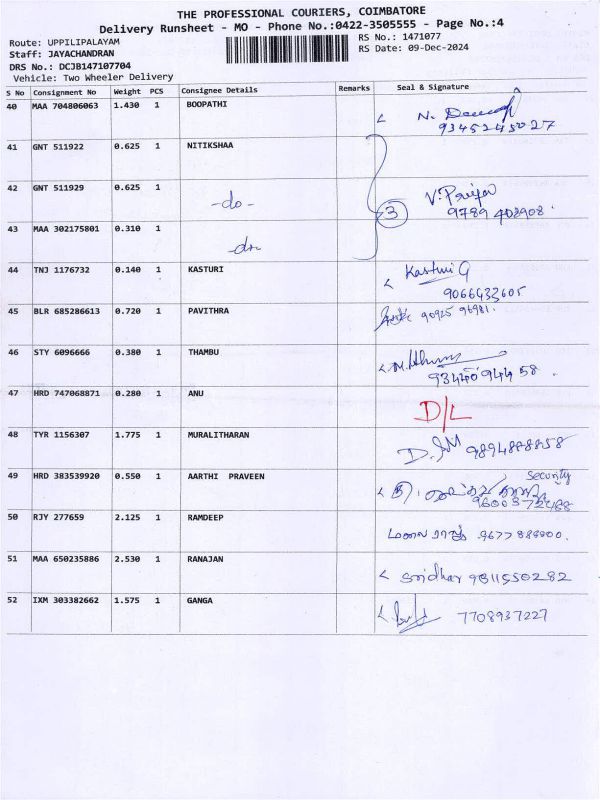 THE PROFESSIONAL COURIERS, COIMBATORE
Delivery Runsheet - MO - Phone No.:0422-3505555 - Page No.:4
Route: UPPILIPALAYAM
RS No.: 1471077
Staff: JAYACHANDRAN
RS Date: 09-Dec-2024
DRS No.: DCJB147107704
Vehicle: Two Wheeler Delivery
S No Consignment No Weight PCS Consignee Details Remarks Seal & Signature
40 MAA 704806063 1.430 1 BOOPATHI N.
9345245027
41 GNT 511922 0.625 1 NITIKSHAA
42 GNT 511929 0.625 1 -do- 3 V. Priya
9789 402908.
43 MAA 302175801 0.310 1 -do-
44 TNJ 1176732 0.140 1 KASTURI Kasturi G
9066433605
45 BLR 685286613 0.720 1 PAVITHRA 90925 96981.
46 STY 6096666 0.380 1 THAMBU
93440 944 58.
47 HRD 747068871 0.280 1 ANU D/L
48 TYR 1156307 1.775 1 MURALITHARAN 9894888858
49 HRD 383539920 0.550 1 AARTHI PRAVEEN Security
96003 72488
50 RJY 277659 2.125 1 RAMDEEP 9677 888900.
51 MAA 650235886 2.530 1 RANAJAN Sridhar 9811550282
52 IXM 303382662 1.575 1 GANGA 7708937227